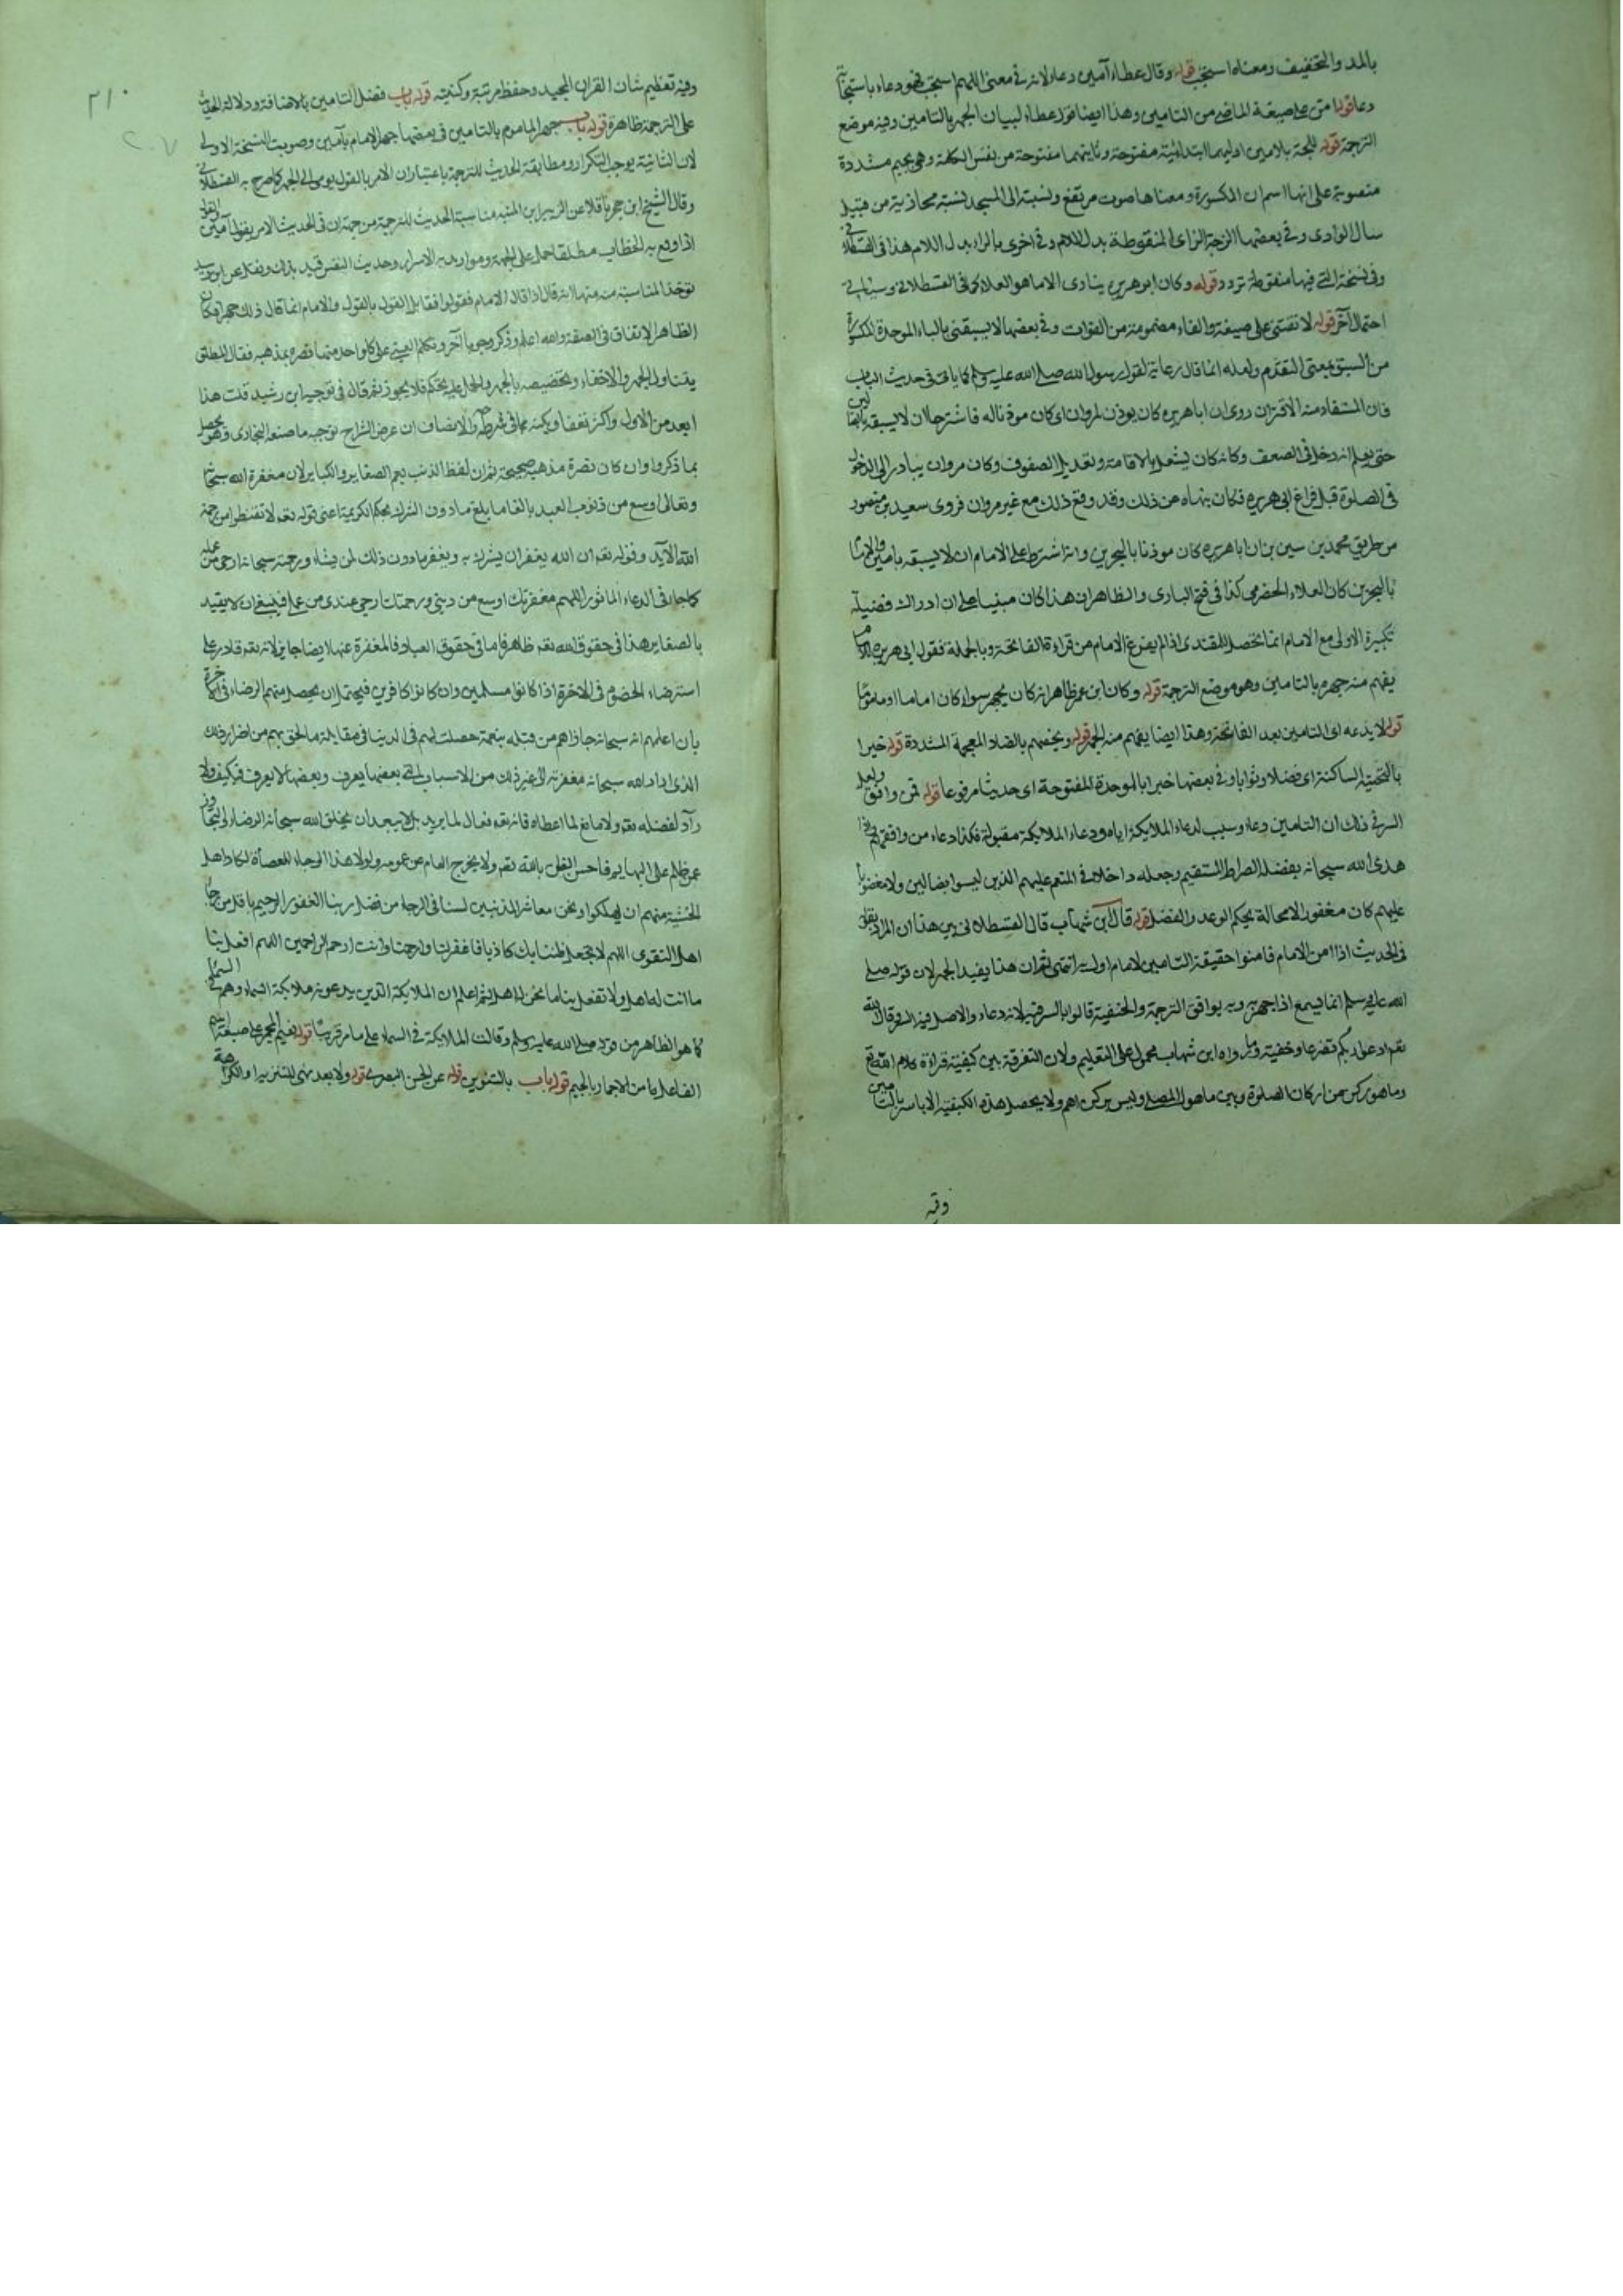 بالمد والتخفيف ومعناه استجب قوله وقال عطاء آمين دعاء لانه في معنى اللهم استجب فهو دعاء باستجابة
دعا قوله امّن على صيغة الماضي من التامين وهذا ايضا قول عطاء لبيان الجهر بالتامين وفيه موضع
الترجمة قوله للجة بلامين اوليهما ابتدائية مفتوحة وثانيتهما مفتوحة من نفس الكلمة وهي بجيم مشددة
منصوبة على انها اسم ان المكسورة ومعناها صوت مرتفع ونسبته الى المسجد نسبة مجازية من قبيل
سال الوادي وفي بعضها الزجة الزاى المنقوطة بدل اللام وفي اخرى بالراء بدل اللام هذا في القسطلاني
وفي نسخة التي فيها منقوطة تردد قوله وكان ابو هريرة ينادى الامام هو العلاء كما في القسطلاني وسياتي
احتمال آخر قوله لا تفتني على صيغة والفاء مضمومة من الفوات وفي بعضها لا يسبقني بالباء الموحدة المكسورة
من السبق بمعنى التقدم ولعله انما قال رعاية لقول رسول الله صلى الله عليه وسلم كما ياتي في حديث الباب
فان المستفاد منه الاقتران روى ان ابا هريرة كان يوذن لمروان اى كان موذنا له فاشترط ان لا يسبقه بالضالين
حتى يعلم انه دخل في الصف وكانه كان يشتغل بالاقامة وتعديل الصفوف وكان مروان يبادر الى الدخول
في الصلوة قبل فراغ ابي هريرة فكان ينهاه عن ذلك وقد وقع ذلك مع غير مروان فروى سعيد بن منصور
من طريق محمد بن سيرين ان ابا هريرة كان موذنا بالبحرين وانه اشترط على الامام ان لا يسبقه بامين والامام
بالبحرين كان العلاء الحضرمي كذا في فتح الباري والظاهر ان هذا كان مبنيا على ان ادراك فضيلة
تكبيرة الاولى مع الامام انما تحصل للمقتدى اذا لم يفرغ الامام من قراءة الفاتحة وبالجملة فقول ابي هريرة للامام
يفهم منه جهره بالتامين وهو موضع الترجمة قوله وكان ابن عمر ظاهر انه كان يجهر سواء كان اماما او ماموما
قوله لا يدعه اى التامين بعد الفاتحة وهذا ايضا يفهم منه الجهر قوله ويحضهم بالضاد المعجمة المشددة قوله خيرا
بالتحتية الساكنة اى فضلا وثوابا وفي بعضها خبرا بالموحدة المفتوحة اى حديثا مرفوعا قوله فمن وافق ولعل
السر في ذلك ان التامين دعاء وسبب لدعاء الملايكة اياه ودعاء الملايكة مقبولة فكذا دعاء من وافقهم فاذا
هدى الله سبحانه بفضله الصراط المستقيم وجعله داخلا في المنعم عليهم الذين ليسوا بضالين ولا مغضوبا
عليهم كان مغفورا لا محالة بحكم الوعد والفضل قوله قال ابن شهاب قال القسطلاني بين هذا ان المراد بقوله
في الحديث اذا امن الامام فامنوا حقيقة التامين لامام اوليه انتهى ثم ان هذا يفيد الجهر لان قوله صلى
الله عليه وسلم انما يسمع اذا جهر به وبه يوافق الترجمة والحنفية قالوا بالسر فيه لانه دعاء والاصل فيه السر وقال الله
تعم ادعوا ربكم تضرعا وخفية وما رواه ابن شهاب محمول على التعليم ولان التفرقة بين كيفية قراءة كلام الله تع
وما هو ركن من اركان الصلوة وبين ما هو وليس بركن اهم ولا يحصل هذه الكيفية الا باسرار بالتامين
وفيه
٢١٠
٢٠٧
وفيه تعظيم شان القران المجيد وحفظ مرتبته وكنيته قوله باب فضل التامين بالاضافة ودلالة الحديث
على الترجمة ظاهرة قوله باب جهر الماموم بالتامين في بعضها جهر الامام بآمين وصوبت النسخة الاولى
لان الثانية يوجب التكرار ومطابقة الحديث للترجمة باعتبار ان الامر بالقول يومى الى الجهر كما صرح به القسطلاني
وقال الشيخ ابن حجر ناقلا عن الزبير ابن المنير مناسبة الحديث للترجمة من جهة ان في الحديث الامر بقول آمين والقول
اذا وقع به الخطاب مطلقا حمل على الجهر ومتى اريد به الاسرار وحديث النفس قيد بذلك ونقل عن ابن رشيد
توخذ المناسبة منه منها انه قال اذا قال الامام فقولوا فقابل القول بالقول والامام انما قال ذلك جهرا فكان
الظاهر الاتفاق في الصفة والله اعلم وذكر وجوها آخر وتكلم العيني على كل واحد منها نصره بمذهبه فقال المطلق
يتناول الجهر والاخفاء وتخصيصه بالجهر والحمل عليه تحكم فلا يجوز ثم قال في توجيه ابن رشيد قلت هذا
ابعد من الاول واكثر تعسفا ويكنه بما في شرطه والانصاف ان غرض الشراح توجيه ما صنعه البخارى وهو يحصل
بما ذكروا وان كان نصرة مذهب صحيحة ثم ان لفظ الذنب يعم الصغاير والكباير لان مغفرة الله سبحانه
وتعالى اوسع من ذنوب العبد بالغا ما بلغ ما دون الشرك بحكم الكريمة اعنى قوله تعم لا تقنطوا من رحمة
الله الآية وقوله تعم ان الله يغفر ان يشرك به ويغفر ما دون ذلك لمن يشاء ورحمته سبحانه ارجى من عمله
كما جاء في الدعاء الماثور اللهم مغفرتك اوسع من ذنبي ورحمتك ارجى عندى من عملي فينبغي ان لا يقيد
بالصغاير هذا في حقوق الله تعم ظاهر واما في حقوق العباد فالمغفرة عنها ايضا جايز لانه تعم قادر على
استرضاء الخصوم في الاخرة اذا كانوا مسلمين وان كانوا كافرين فيحتمل ان يحصل منهم الرضاء في الآخرة
بان اعلمهم انه سبحانه جازاهم من قبله بنعمة حصلت لهم في الدنيا في مقابلة ما لحق بهم من اضرار ذلك
الذى اراد الله سبحانه مغفرته الى غير ذلك من الاسباب التي بعضها يعرف وبعضها لا يعرف فكيف ولا
رآد لفضله تعم ولا مانع لما اعطاه فانه تعم فعال لما يريد بل لا يبعد ان يخلق الله سبحانه الرضاء والتجاوز
عمن ظلم على البهايم فاحسن الظن بالله تعم ولا يخرج العام عن عمومه ولولا هذا الرجاء للعصاة لكاد اهل
الخشية منهم ان يهلكوا ونحن معاشر المذنبين لسنا في الرجاء من فضل ربنا الغفور الرحيم باقل من رجاء
اهل التقوى اللهم لا تجعل ظننا بك كاذبا فاغفر لنا وارحمنا وانت ارحم الراحمين اللهم افعل بنا
ما انت له اهل ولا تفعل بنا ما نحن له اهل ثم اعلم ان الملايكة الذين يدعونه ملايكة السماء وهم في السماء
كما هو الظاهر من قوله صلى الله عليه وسلم وقالت الملايكة في السماء على ما مر قريبا قوله نعيم المجمر على صيغة اسم
الفاعل اما من الاجمار بالجيم قوله باب بالتنوين قوله عن الحسن البصرى قوله ولا تعد نهى للتنزيه او الكراهة